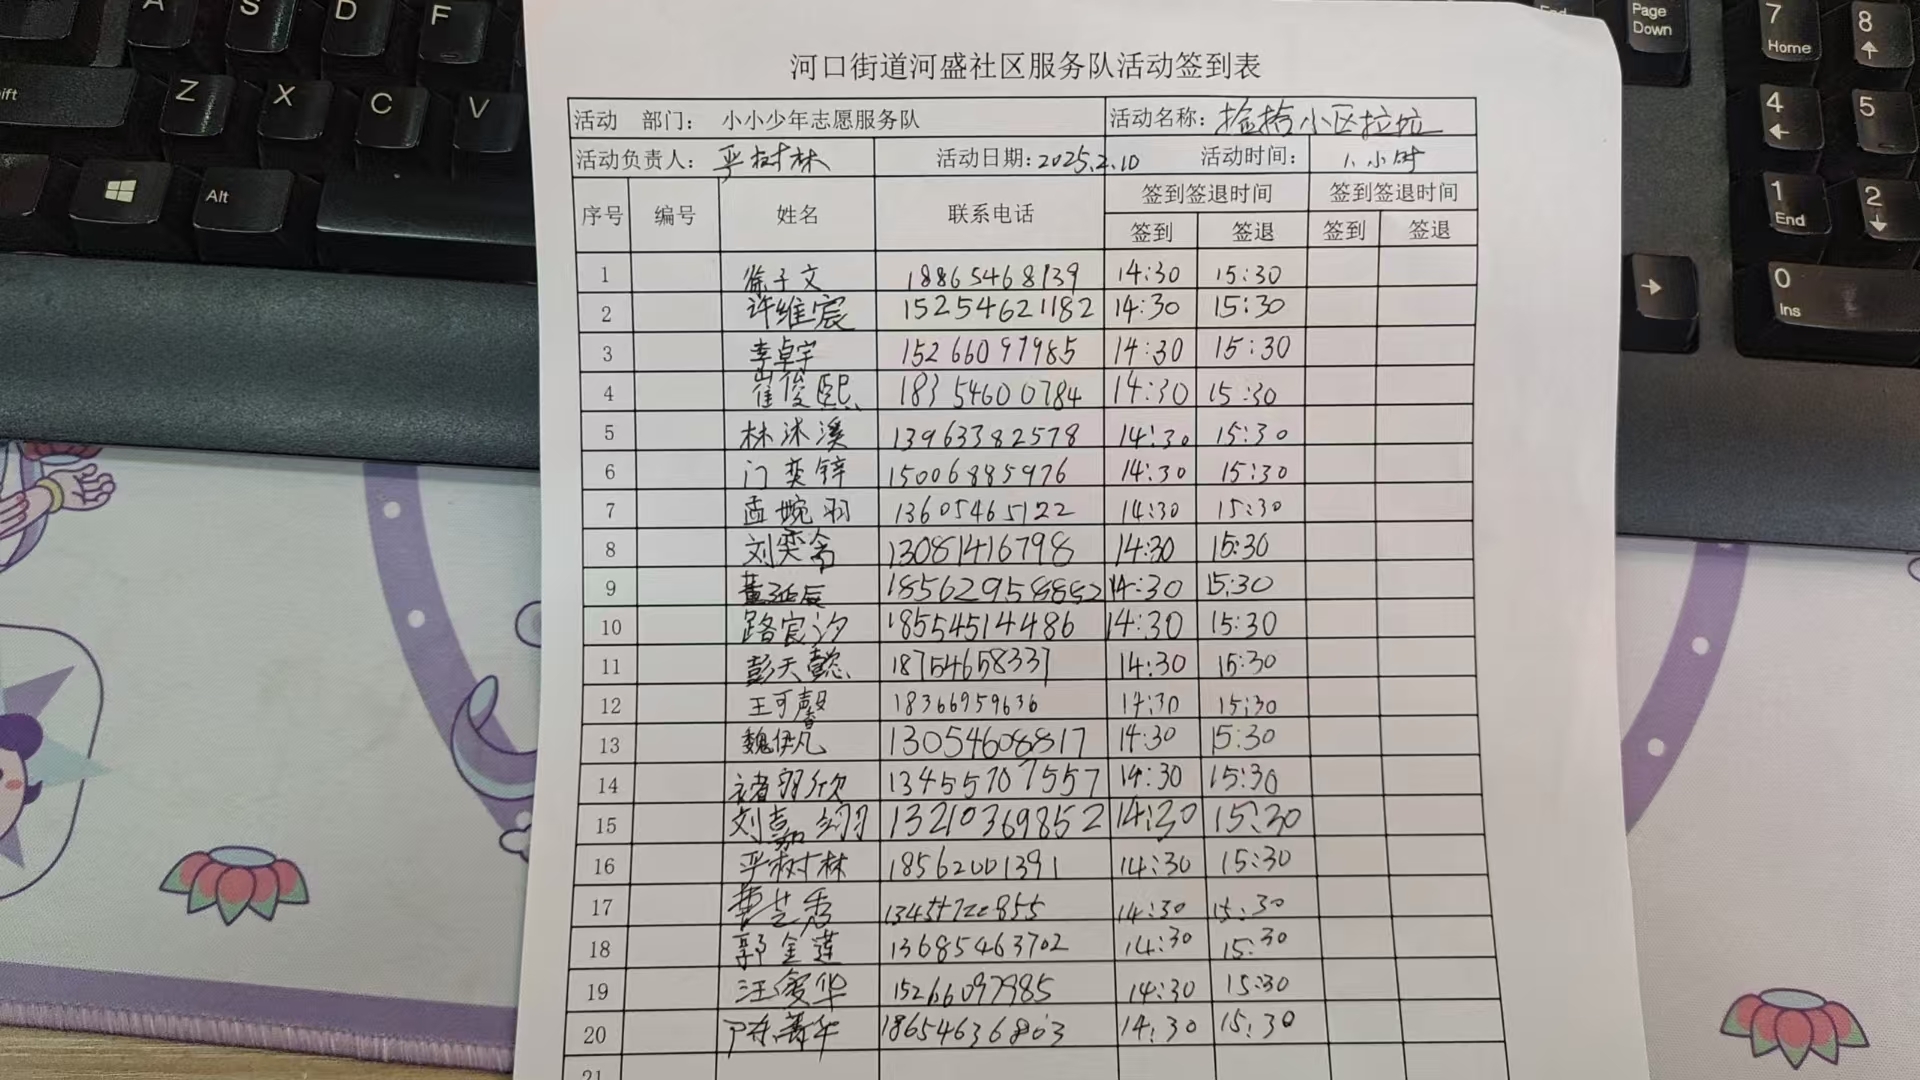 A S D F
Z X C V
Alt
Page Down
7 Home 8
4 5
1 End 2
0 Ins
河口街道河盛社区服务队活动签到表
活动 部门： 小小少年志愿服务队 活动名称：捡拾小区垃圾
活动负责人：平树林 活动日期：2025.2.10 活动时间：1小时
序号 编号 姓名 联系电话 签到签退时间 签到签退时间
签到 签退 签到 签退
1 徐子文 18865468139 14:30 15:30
2 许维宸 15254621182 14:30 15:30
3 李卓宇 15266097985 14:30 15:30
4 崔俊熙 18354600784 14:30 15:30
5 林沐溪 13963382578 14:30 15:30
6 门奕锌 15006885976 14:30 15:30
7 孟婉羽 13605465122 14:30 15:30
8 刘奕 13081416798 14:30 15:30
9 董延辰 18562958882 14:30 15:30
10 路宸汐 18554514486 14:30 15:30
11 彭天懿 18754658337 14:30 15:30
12 王可馨 18366959636 14:30 15:30
13 魏伊凡 13054608817 14:30 15:30
14 褚羽欣 13455707557 14:30 15:30
15 刘嘉翊 13210369852 14:30 15:30
16 平树林 18562001391 14:30 15:30
17 芝秀 14:30 15:30
18 郭金莲 13685463702 14:30 15:30
19 汪爱华 15266097985 14:30 15:30
20 18654636803 14:30 15:30
21